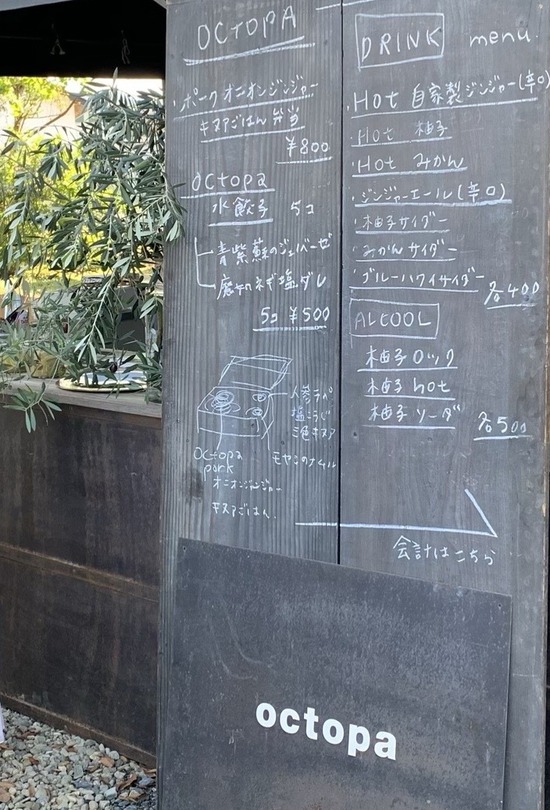 OCTOPA
・ポーク オニオンジンジャー
キヌアごはん 弁当
¥800
octopa
水餃子 5コ
青紫蘇のジェノベーゼ
魔セロネギ塩ダレ
5コ ¥500
人参ラペ
塩こうじ
三色キヌア
モヤシのナムル
Octopa
pork
オニオンジンジャー
キヌアごはん
DRINK menu.
・Hot 自家製ジンジャー(辛口)
・Hot 柚子
・Hot みかん
・ジンジャーエール(辛口)
・柚子サイダー
・みかんサイダー
・ブルーハワイサイダー
各400
ALCOOL
柚子ロック
柚子hot
柚子ソーダ
各500
会計はこちら
octopa